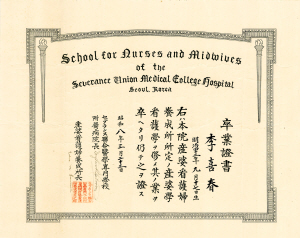 School for Nurses and Midwives
of the
Severance Union Medical College Hospital
Seoul, Korea
卒業證書
李喜春
右ハ本院産婆看護婦
養成所所定ノ産婆學
看護學ヲ修メ其ノ業ヲ
卒ヘタリ仍テ之ヲ證ス
昭和八年三月
セブランス聯合醫學專門學校
附屬病院長
産婆看護婦養成所長